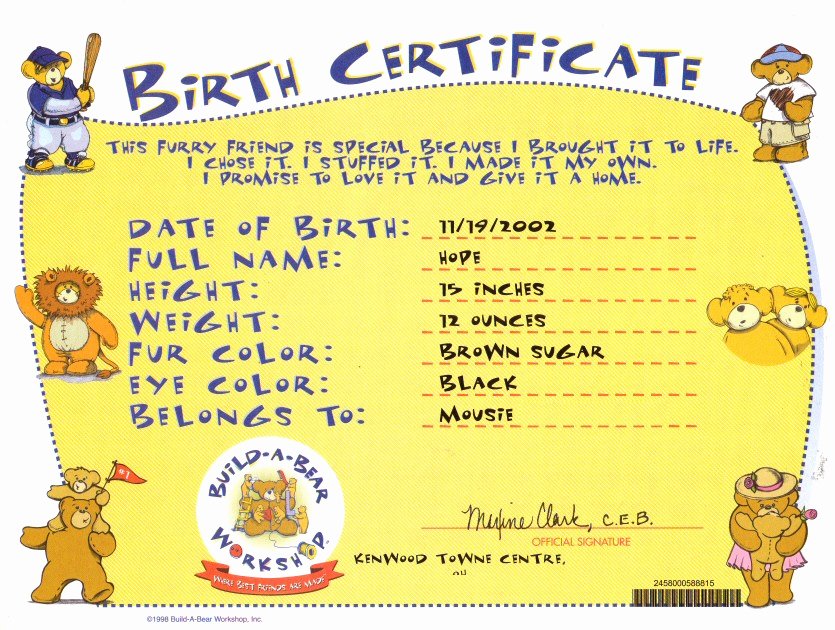 BIRTH CERTIFICATE
THIS FURRY FRIEND IS SPECIAL BECAUSE I BROUGHT IT TO LIFE.
I CHOSE IT. I STUFFED IT. I MADE IT MY OWN.
I PROMISE TO LOVE IT AND GIVE IT A HOME.
DATE OF BIRTH: 11/19/2002
FULL NAME: HOPE
HEIGHT: 15 INCHES
WEIGHT: 12 OUNCES
FUR COLOR: BROWN SUGAR
EYE COLOR: BLACK
BELONGS TO: MOUSIE
#1
BUILD-A-BEAR
WORKSHOP
WHERE BEST FRIENDS ARE MADE
Maxine Clark, C.E.B.
OFFICIAL SIGNATURE
KENWOOD TOWNE CENTRE,
OH
2458000588815
©1998 Build-A-Bear Workshop, Inc.